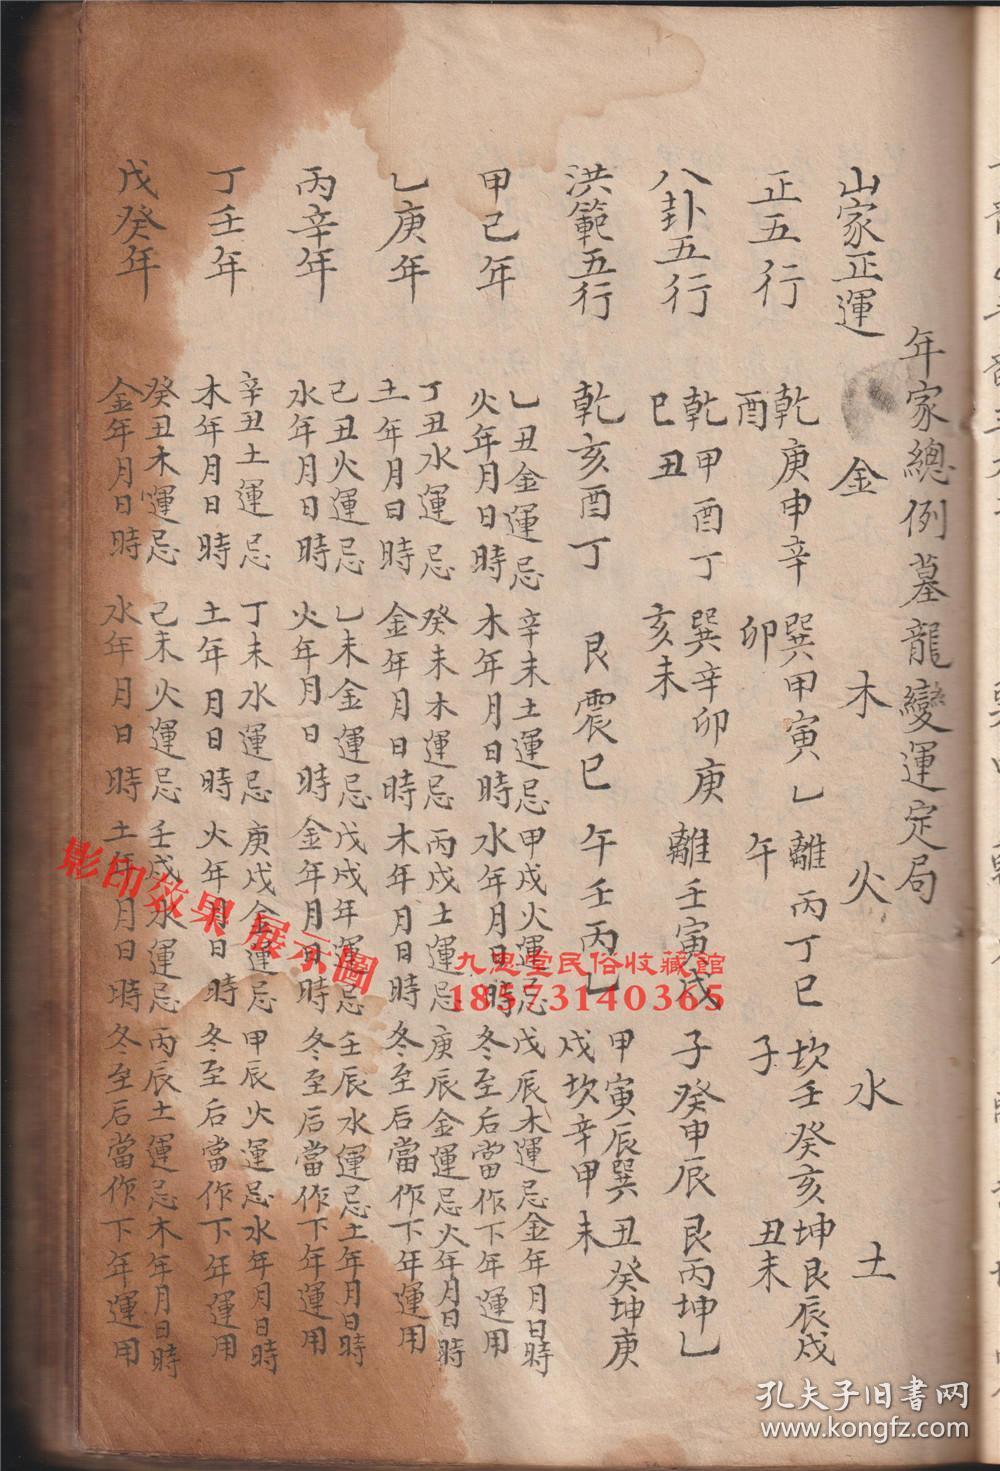 年家總例墓龍變運定局
山家正運 金 木 火 水 土
正五行 乾庚申辛酉 巽甲寅乙卯 離丙丁巳午 坎壬癸亥子 坤艮辰戌丑未
八卦五行 乾甲酉丁巳丑 巽辛卯庚亥未 離壬寅戌 子癸申辰 艮丙坤乙
洪範五行 乾亥酉丁 艮震巳 午壬丙乙 甲寅辰巽戌坎辛申 丑癸坤庚未
甲己年 乙丑金運忌火年月日時 辛未土運忌木年月日時 甲戌火運忌水年月日時 戊辰木運忌金年月日時冬至后當作下年運用
乙庚年 丁丑水運忌土年月日時 癸未木運忌金年月日時 丙戌土運忌木年月日時 庚辰金運忌火年月日時冬至后當作下年運用
丙辛年 己丑火運忌水年月日時 乙未金運忌火年月日時 戊戌年運忌金年月日時 壬辰水運忌土年月日時冬至后當作下年運用
丁壬年 辛丑土運忌木年月日時 丁未水運忌土年月日時 庚戌金運忌火年月日時 甲辰火運忌水年月日時冬至后當作下年運用
戊癸年 癸丑木運忌金年月日時 己未火運忌水年月日時 壬戌水運忌土年月日時 丙辰土運忌木年月日時冬至后當作下年運用
影印效果 展示圖
九思堂民俗收藏館
18573140365
孔夫子旧書网
www.kongfz.com